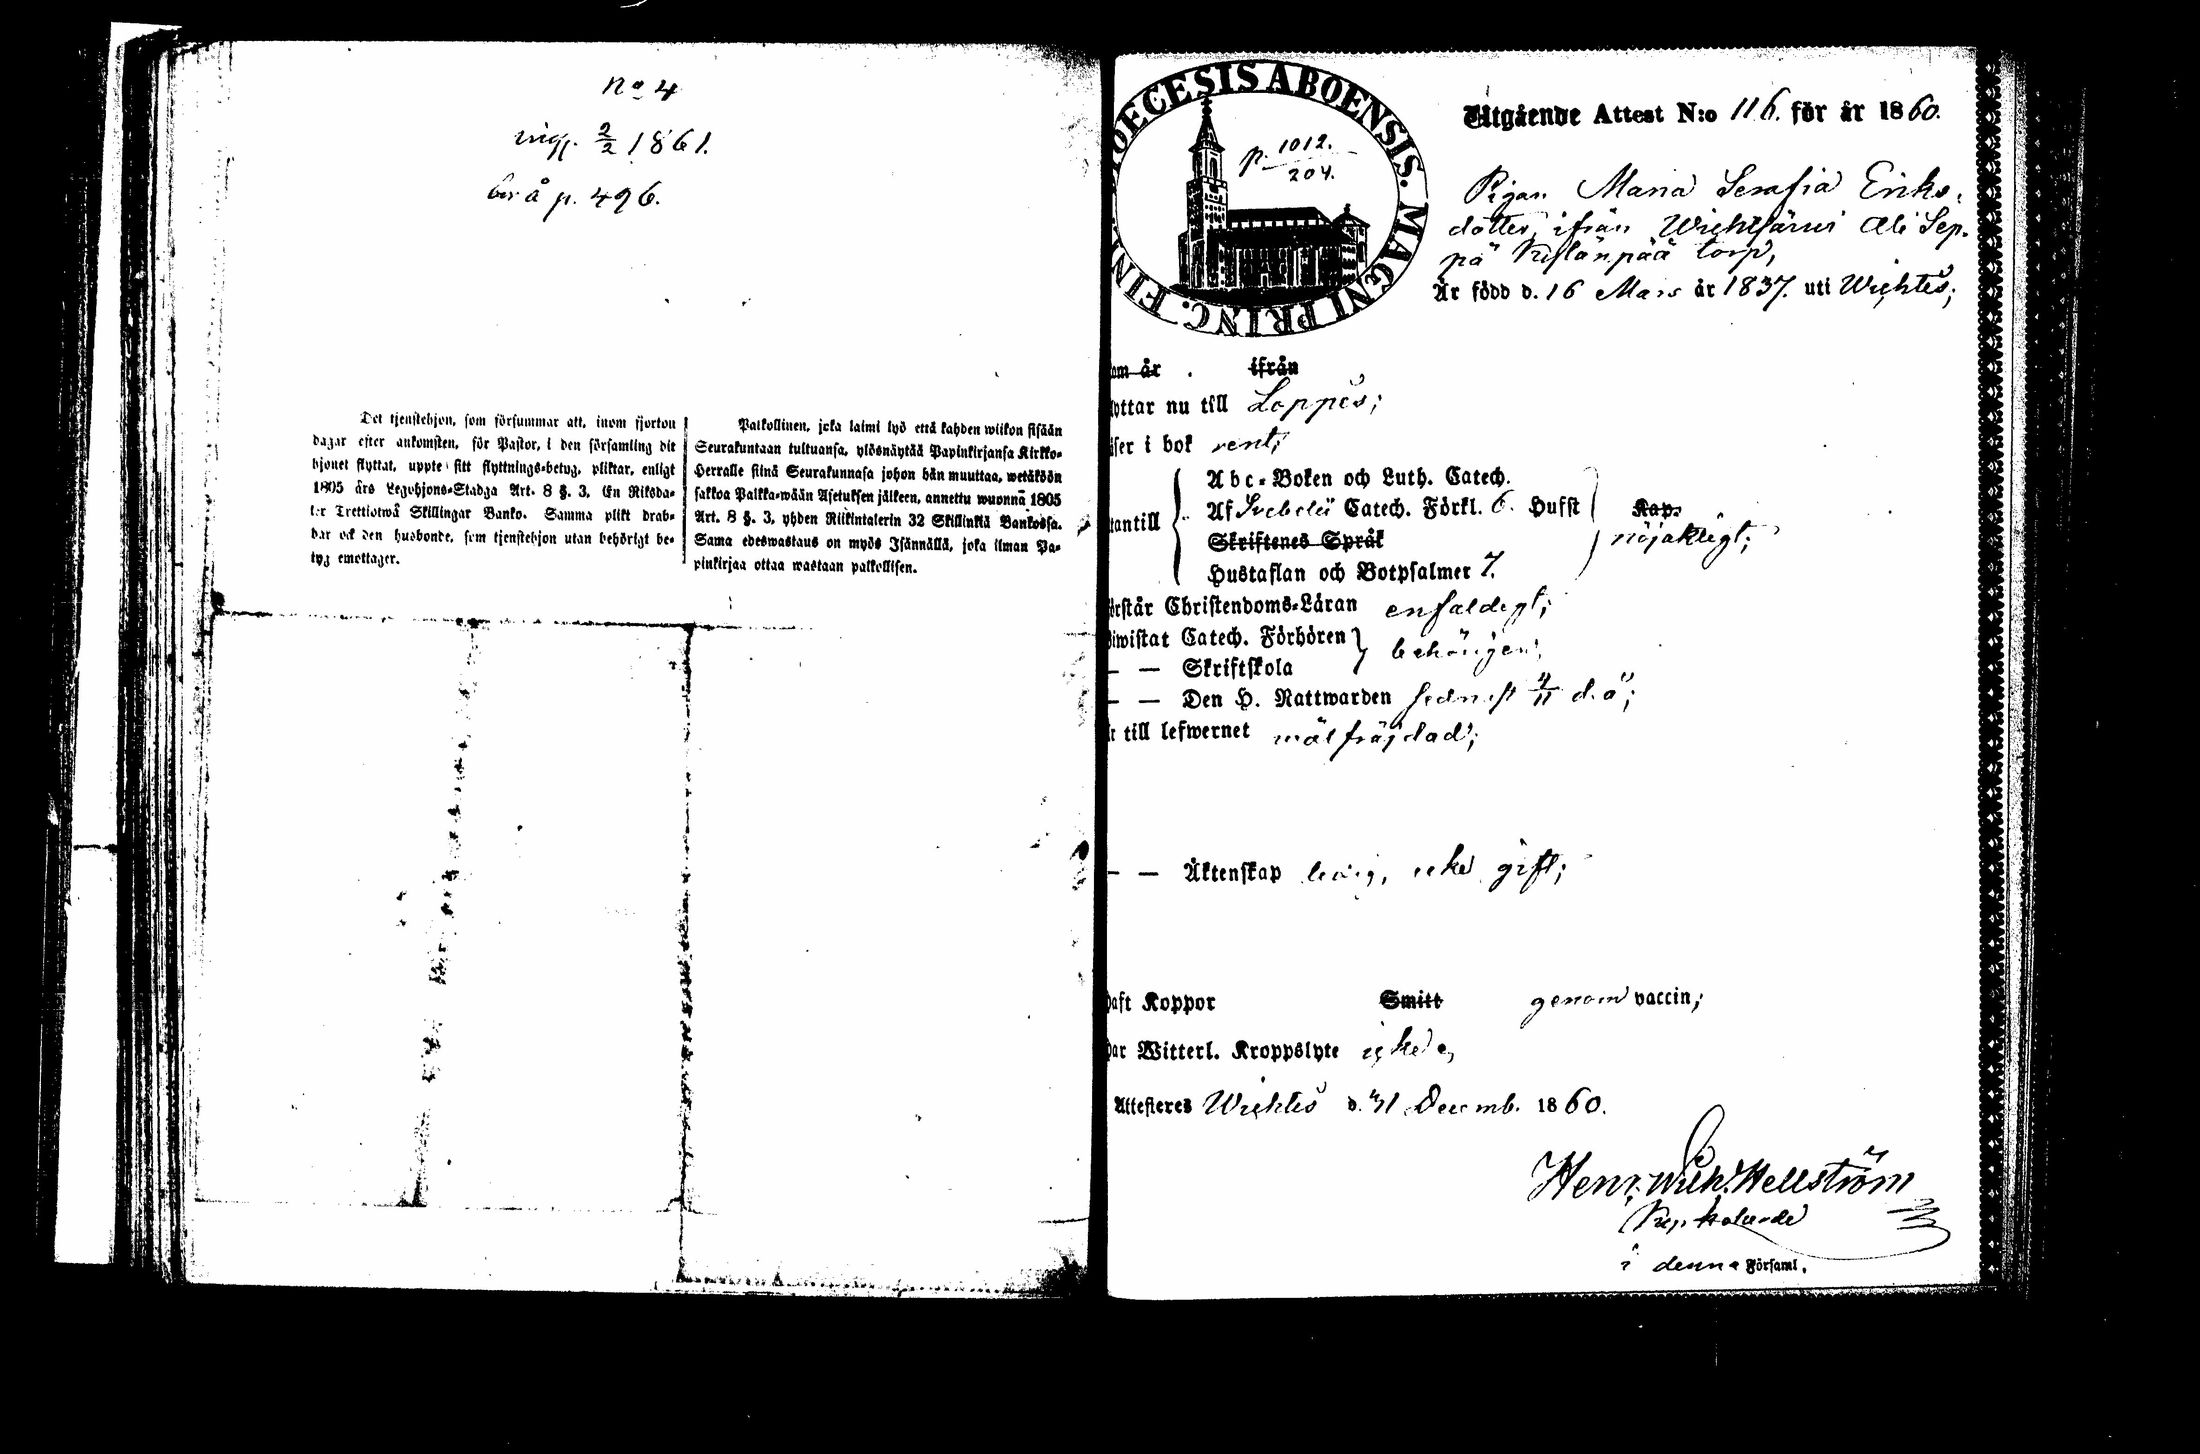 No 4
ingf. 2/2 1861.
ber å p. 496.
Det tjenstehjon, som försummar att, inom fjorton
dagar efter ankomsten, för Pastor, i den församling dit
hjonet flyttat, uppte sitt flyttnings-betyg, pliktar, enligt
1805 års Legohjons-Stadga Art. 8 §. 3, En Riksda-
ler Trettiotwå Skillingar Banko. Samma plikt drab-
bar ock den husbonde, som tjenstehjon utan behörigt be-
tyg emottager.
Palkollinen, joka laimi lyö että kahden wiikon sisään
Seurakuntaan tultuansa, ylösnäytää Papinkirjansa Kirkko-
Herralle siinä Seurakunnasa johon hän muuttaa, wetäköön
sakkoa Palkka-wään Asetuksen jälkeen, annettu wuonna 1805
Art. 8 §. 3, yhden Riikintalerin 32 Skillinkiä Bankossa.
Sama edeswastaus on myös Isännällä, joka ilman Pa-
pinkirjaa ottaa wastaan palkollisen.
DIOECESIS ABOENSIS. MAGNI PRINC. FINL.
p. 1012.
204.
Utgående Attest N:o 116. för år 1860.
Pigan Maria Serafia Eriks-
dotter, ifrån Wichtjärwi Ali Sep-
pä torp,
Är född d. 16 Mars år 1837. uti Wichtis;
om år . ifrån
yttar nu till Loppis;
äser i bok rent;
tantill
Abc-Boken och Luth. Catech.
Af Svebelii Catech. Förkl. 6. Hufst
Skriftenes Språk
Hustaflan och Botpsalmer 7.
Kap.
nöjaktigt;
örstår Christendoms-Läran enfaldigt;
iwistat Catech. Förhören
— — Skriftskola
behörigen;
— — Den H. Nattwarden sednast 4/11 d. å;
r till lefwernet wälfräjdad;
— — Äktenskap ledig, icke gift;
haft Koppor Smitt genom vaccin;
har Witterl. Kroppslyte icke,
Attesteres Wichtis d. 31 Decemb. 1860.
Henr. Wilh. Hellström
i denna Församl.